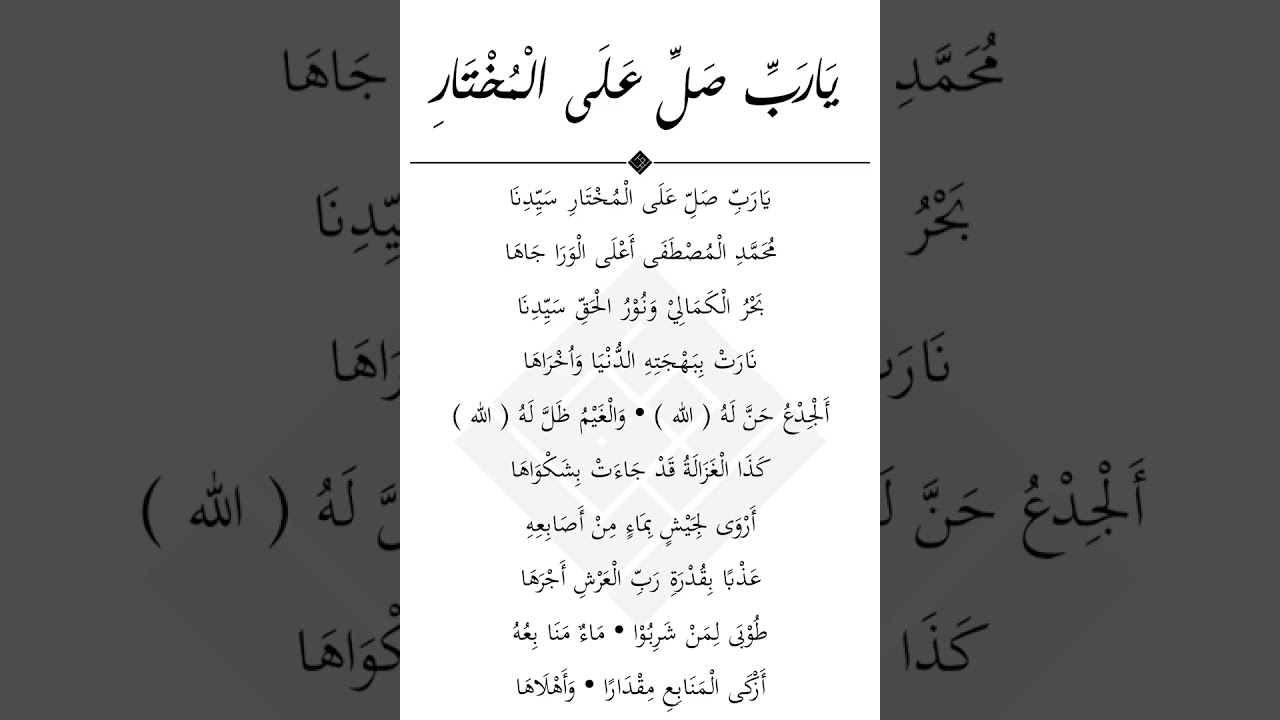 يَارَبِّ صَلِّ عَلَى الْمُخْتَارِ
يَارَبِّ صَلِّ عَلَى الْمُخْتَارِ سَيِّدِنَا
مُحَمَّدِ الْمُصْطَفَى أَعْلَى الْوَرَا جَاهَا
بَحْرُ الْكَمَالِيْ وَنُوْرُ الْحَقِّ سَيِّدِنَا
نَارَتْ بِبَهْجَتِهِ الدُّنْيَا وَاُخْرَاهَا
أَلْجِذْعُ حَنَّ لَهُ ( الله ) • وَالْغَيْمُ ظَلَّ لَهُ ( الله )
كَذَا الْغَزَالَةُ قَدْ جَاءَتْ بِشَكْوَاهَا
أَرْوَى لِجَيْشٍ بِمَاءٍ مِنْ أَصَابِعِهِ
عَذْبًا بِقُدْرَةِ رَبِّ الْعَرْشِ أَجْرَهَا
طُوْبَى لِمَنْ شَرِبُوْا • مَاءٌ مَنَا بِعُهُ
أَزْكَى الْمَنَابِعِ مِقْدَارًا • وَأَهْلَاهَا